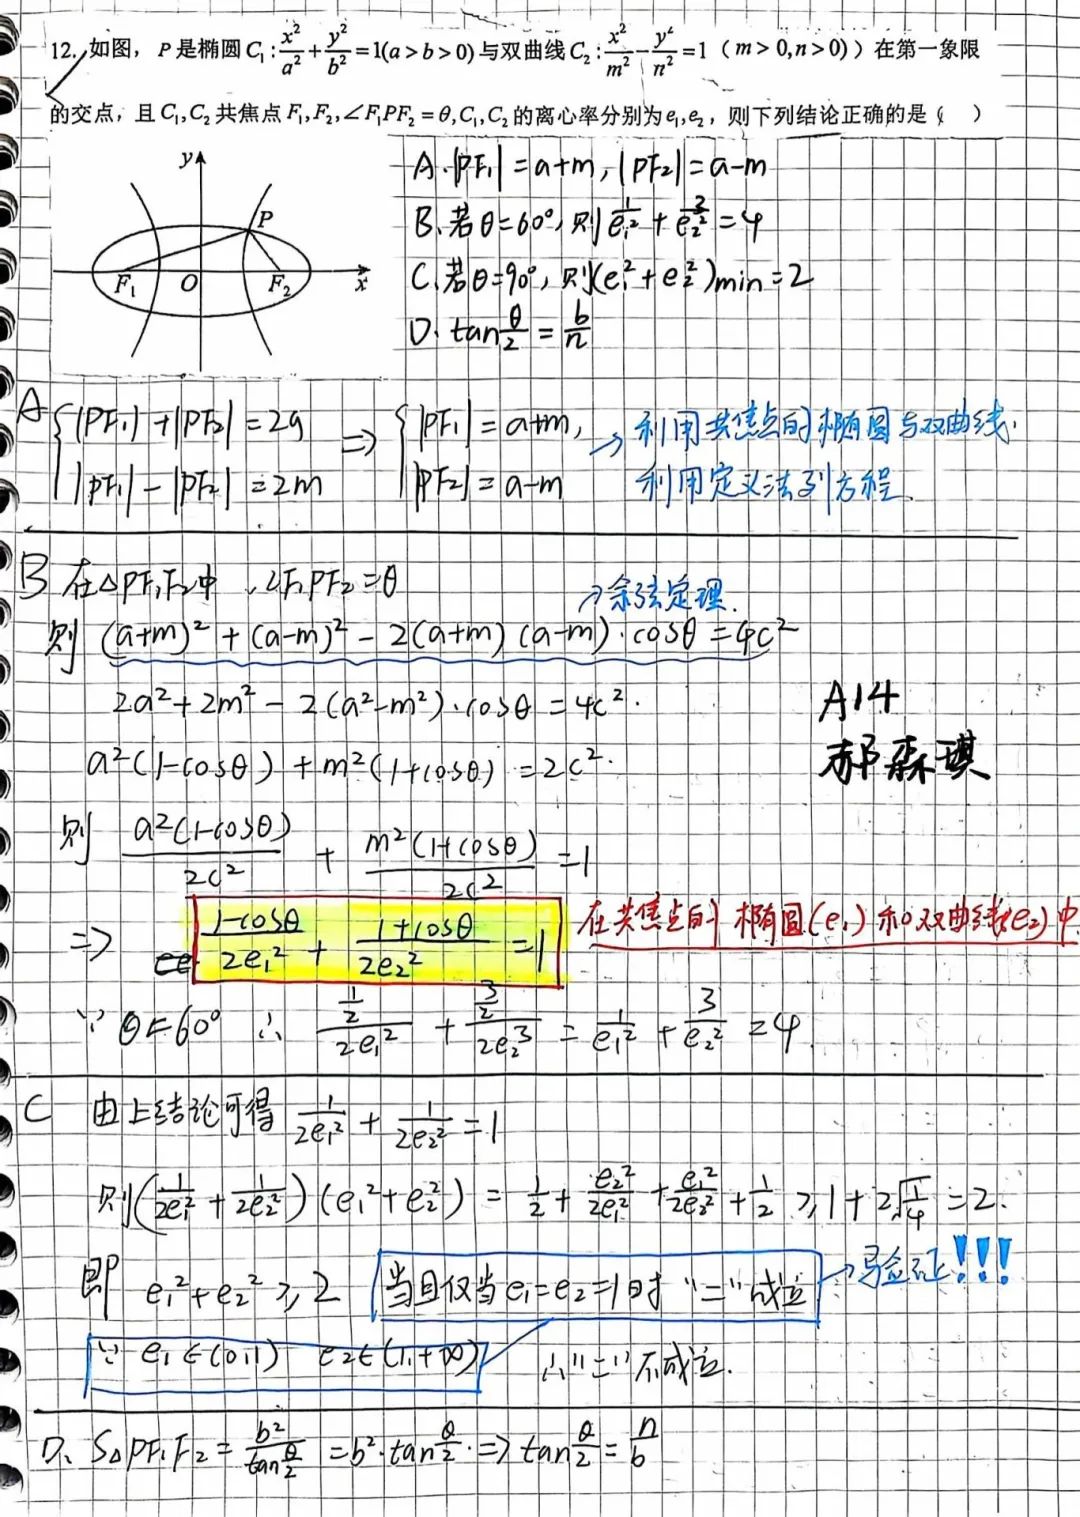 12. 如图，P是椭圆C₁:x²/a²+y²/b²=1(a>b>0)与双曲线C₂:x²/m²-y²/n²=1（m>0,n>0)）在第一象限
的交点，且C₁,C₂共焦点F₁,F₂,∠F₁PF₂=θ,C₁,C₂的离心率分别为e₁,e₂，则下列结论正确的是（ ）
y
P
F₁ O F₂ x
A.|PF₁|=a+m,|PF₂|=a-m
B.若θ=60°,则1/e₁²+3/e₂²=4
C.若θ=90°,则(e₁²+e₂²)min=2
D.tanθ/2=b/n
A {|PF₁|+|PF₂|=2a ⇒ {|PF₁|=a+m, →利用共焦点的椭圆与双曲线.
|PF₁|-|PF₂|=2m |PF₂|=a-m 利用定义法列方程.
B 在△PF₁F₂中,∠F₁PF₂=θ
→余弦定理.
则(a+m)²+(a-m)²-2(a+m)(a-m)·cosθ=4c²
2a²+2m²-2(a²-m²)·cosθ=4c².
A14
a²(1-cosθ)+m²(1+cosθ)=2c².
郝霖琪
则 a²(1-cosθ)/2c² + m²(1+cosθ)/2c² =1
⇒ (1-cosθ)/2e₁² + (1+cosθ)/2e₂² =1 在共焦点的椭圆(e₁)和双曲线(e₂)中
∵θ=60° ∴ (1/2)/2e₁² + (3/2)/2e₂³ = 1/e₁² + 3/e₂² =4.
C 由上结论可得 1/2e₁² + 1/2e₂² =1
则(1/2e₁²+1/2e₂²)(e₁²+e₂²)=1/2+e₂²/2e₁²+e₁²/2e₂²+1/2≥1+2√1/4=2.
即 e₁²+e₂²≥2 当且仅当e₁=e₂=1时"="成立 →验证!!!
∵e₁∈(0,1) e₂∈(1,+∞) ∴"="不成立.
D、S△PF₁F₂=b²/tanθ/2=b²·tanθ/2·⇒tanθ/2=n/b